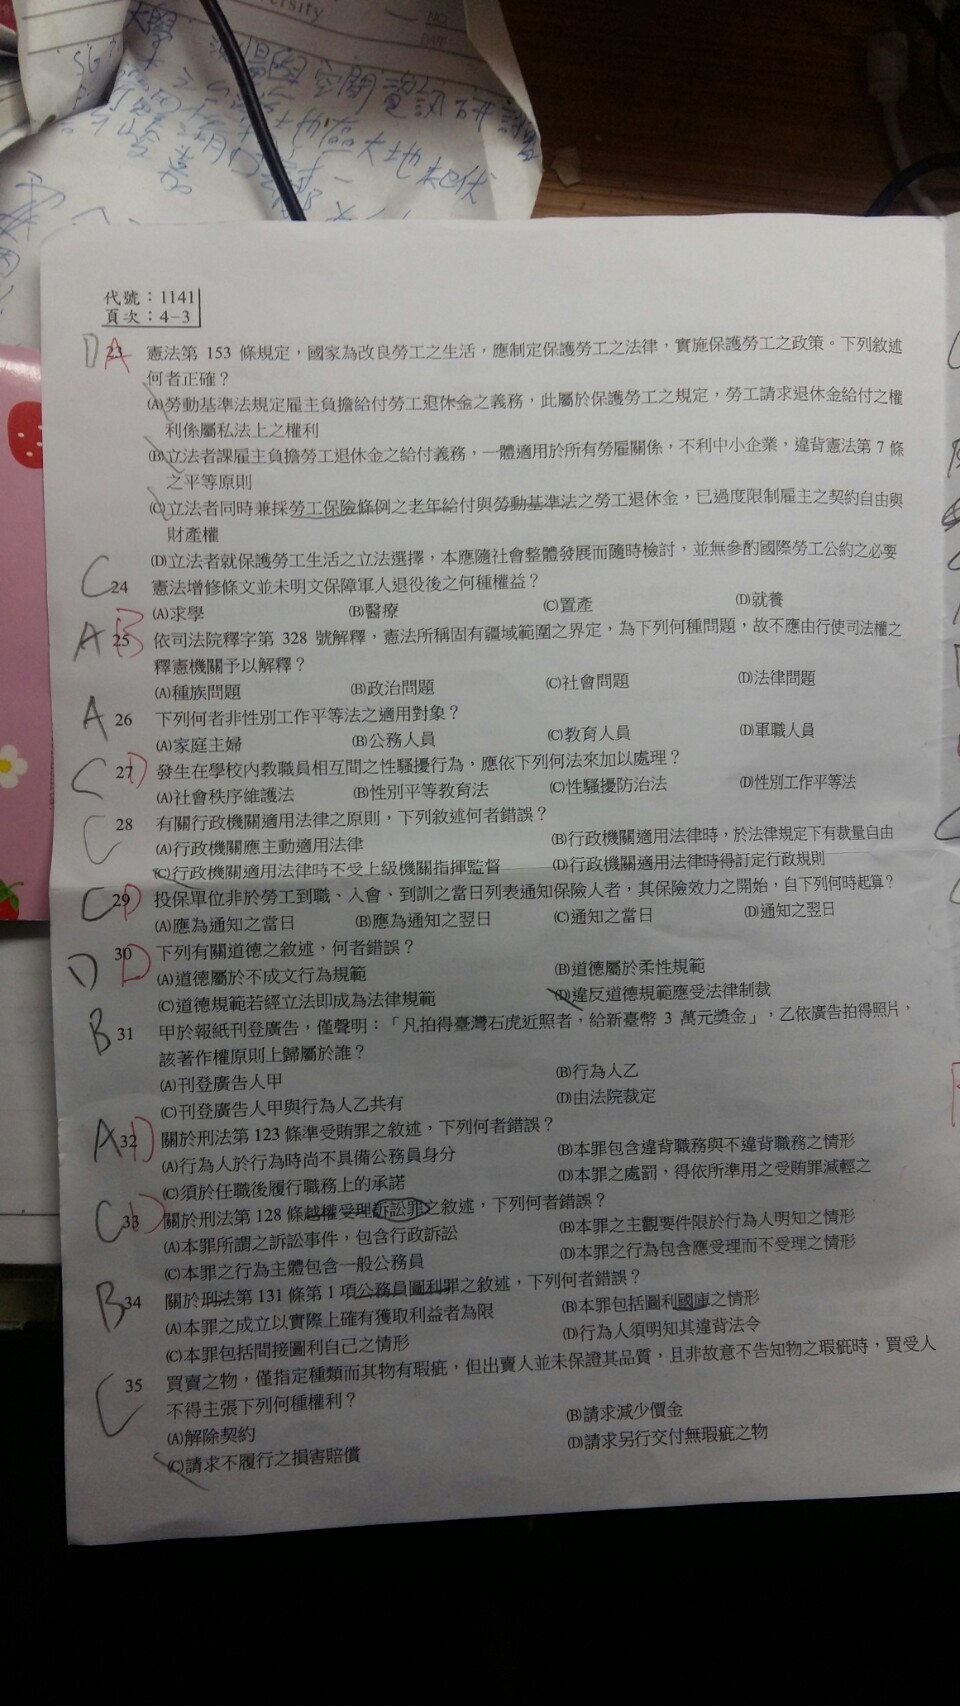 versity
NO.
DATE
代號：1141
頁次：4－3
D A
23 憲法第 153 條規定，國家為改良勞工之生活，應制定保護勞工之法律，實施保護勞工之政策。下列敘述
何者正確？
(A)勞動基準法規定雇主負擔給付勞工退休金之義務，此屬於保護勞工之規定，勞工請求退休金給付之權
利係屬私法上之權利
(B)立法者課雇主負擔勞工退休金之給付義務，一體適用於所有勞雇關係，不利中小企業，違背憲法第 7 條
之平等原則
(C)立法者同時兼採勞工保險條例之老年給付與勞動基準法之勞工退休金，已過度限制雇主之契約自由與
財產權
(D)立法者就保護勞工生活之立法選擇，本應隨社會整體發展而隨時檢討，並無參酌國際勞工公約之必要
C
24 憲法增修條文並未明文保障軍人退役後之何種權益？
(A)求學 (B)醫療 (C)置產 (D)就養
A B
25 依司法院釋字第 328 號解釋，憲法所稱固有疆域範圍之界定，為下列何種問題，故不應由行使司法權之
釋憲機關予以解釋？
(A)種族問題 (B)政治問題 (C)社會問題 (D)法律問題
A
26 下列何者非性別工作平等法之適用對象？
(A)家庭主婦 (B)公務人員 (C)教育人員 (D)軍職人員
C D
27 發生在學校內教職員相互間之性騷擾行為，應依下列何法來加以處理？
(A)社會秩序維護法 (B)性別平等教育法 (C)性騷擾防治法 (D)性別工作平等法
C
28 有關行政機關適用法律之原則，下列敘述何者錯誤？
(A)行政機關應主動適用法律 (B)行政機關適用法律時，於法律規定下有裁量自由
(C)行政機關適用法律時不受上級機關指揮監督 (D)行政機關適用法律時得訂定行政規則
C D
29 投保單位非於勞工到職、入會、到訓之當日列表通知保險人者，其保險效力之開始，自下列何時起算？
(A)應為通知之當日 (B)應為通知之翌日 (C)通知之當日 (D)通知之翌日
D D
30 下列有關道德之敘述，何者錯誤？
(A)道德屬於不成文行為規範 (B)道德屬於柔性規範
(C)道德規範若經立法即成為法律規範 (D)違反道德規範應受法律制裁
B
31 甲於報紙刊登廣告，僅聲明：「凡拍得臺灣石虎近照者，給新臺幣 3 萬元獎金」，乙依廣告拍得照片，
該著作權原則上歸屬於誰？
(A)刊登廣告人甲 (B)行為人乙
(C)刊登廣告人甲與行為人乙共有 (D)由法院裁定
A D
32 關於刑法第 123 條準受賄罪之敘述，下列何者錯誤？
(A)行為人於行為時尚不具備公務員身分 (B)本罪包含違背職務與不違背職務之情形
(C)須於任職後履行職務上的承諾 (D)本罪之處罰，得依所準用之受賄罪減輕之
C D
33 關於刑法第 128 條越權受理訴訟罪之敘述，下列何者錯誤？
(A)本罪所謂之訴訟事件，包含行政訴訟 (B)本罪之主觀要件限於行為人明知之情形
(C)本罪之行為主體包含一般公務員 (D)本罪之行為包含應受理而不受理之情形
B
34 關於刑法第 131 條第 1 項公務員圖利罪之敘述，下列何者錯誤？
(A)本罪之成立以實際上確有獲取利益者為限 (B)本罪包括圖利國庫之情形
(C)本罪包括間接圖利自己之情形 (D)行為人須明知其違背法令
C
35 買賣之物，僅指定種類而其物有瑕疵，但出賣人並未保證其品質，且非故意不告知物之瑕疵時，買受人
不得主張下列何種權利？
(A)解除契約 (B)請求減少價金
(C)請求不履行之損害賠償 (D)請求另行交付無瑕疵之物